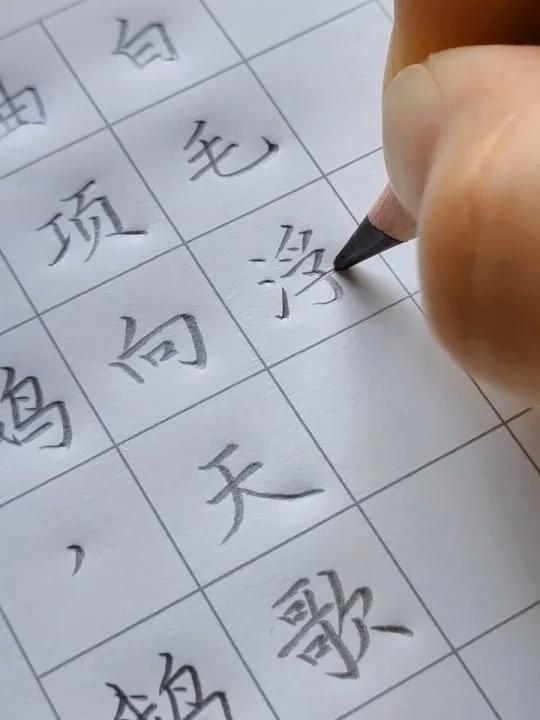 鹅，鹅
曲项向天歌
白毛浮